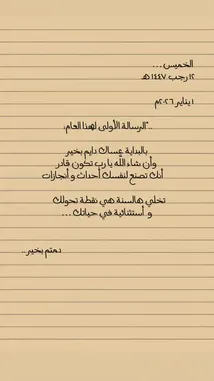 الخميس...
١٢ رجب ١٤٤٧ هـ
١ يناير ٢٠٢٦م
.."الرسالة الأولى لهذا العام:
بالبداية عساك دايم بخير
وأن شاء الله يارب تكون قادر
أنك تصنع لنفسك أحداث و أنجازات
تخلي هالسنة هي نقطة تحولك
و أستثنائية في حياتك ...
دمتم بخير..